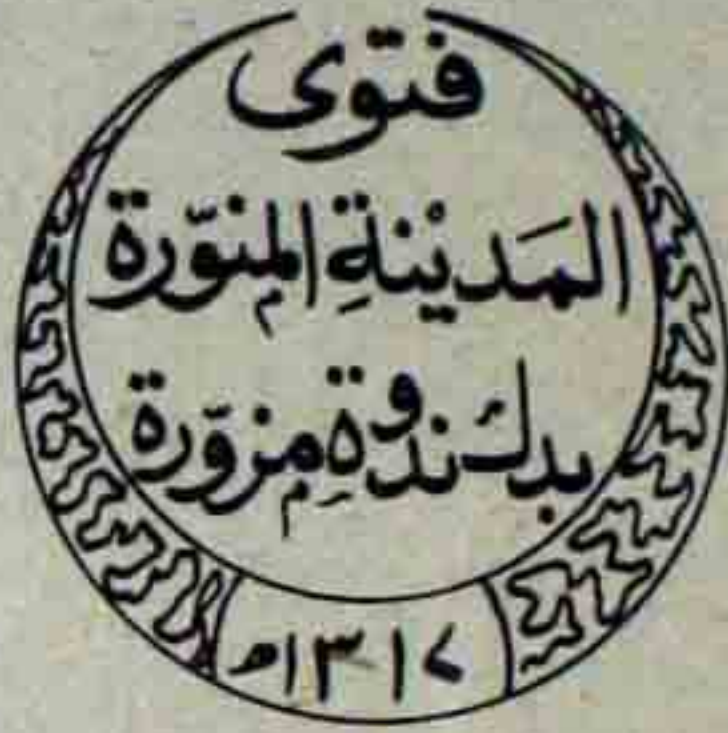 فتوى
المَديْنةِ المنوّرة
بدكِّ ندوةِ مزوّرة
١٣١٧ھ